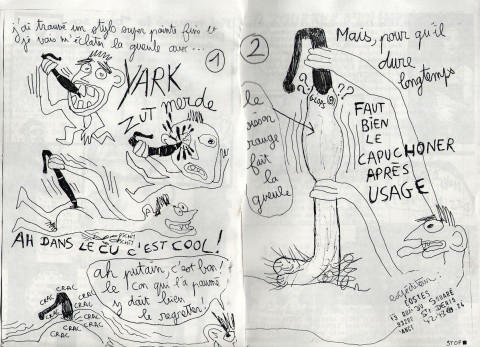 j'ai trouvé un stylo super pointe fine et
je vais m'éclater la gueule avec ...
1
YARK
ZUT merde
PICHIT
PICHIT
AH DANS LE CU C'EST COOL!
CRAC
CRAC
CRAC
CRAC
CRAC
CRAC
CRAC
CRAC
ah putain, c'est bon!
le con qui l'a paumé
y doit bien
le regretter!
2
Mais, pour qu'il
dure
longtemps
??
GLOPS
??
le
orange
fait
la
gueule
FAUT
BIEN
LE
CAPUCHONER
APRÈS
USAGE
expéditeur:
COSTES
ST DENIS
STOP